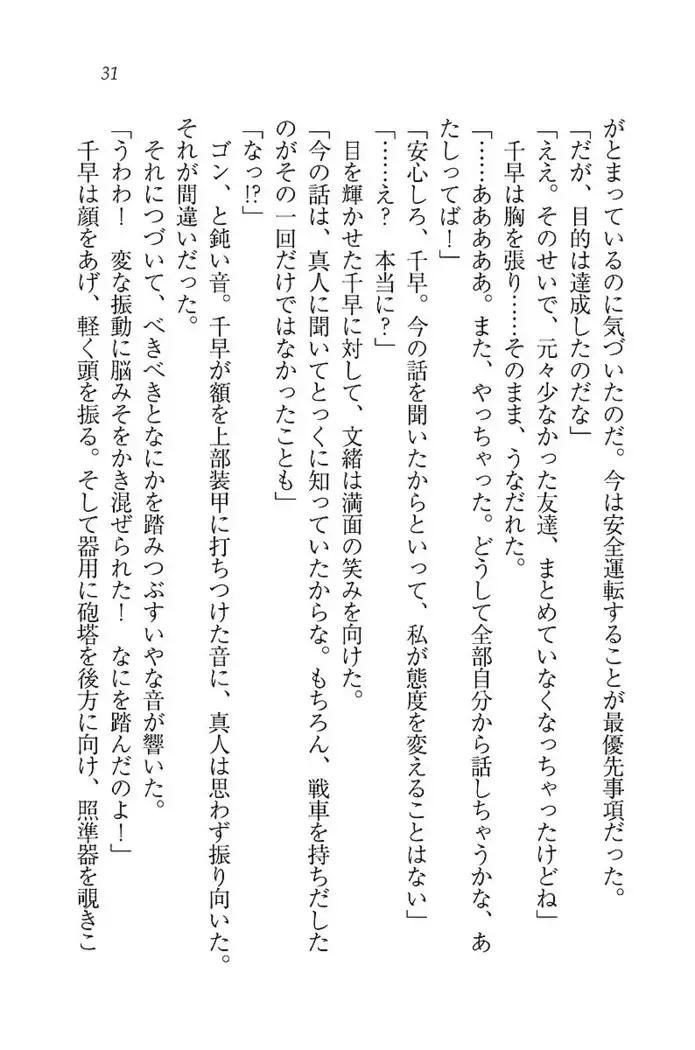 31
がとまっているのに気づいたのだ。今は安全運転することが最優先事項だった。
「だが、目的は達成したのだな」
「ええ。そのせいで、元々少なかった友達、まとめていなくなっちゃったけどね」
千早は胸を張り……そのまま、うなだれた。
「……あああああ。また、やっちゃった。どうして全部自分から話しちゃうかな、あ
たしってば！」
「安心しろ、千早。今の話を聞いたからといって、私が態度を変えることはない」
「……え？　本当に？」
目を輝かせた千早に対して、文緒は満面の笑みを向けた。
「今の話は、真人に聞いてとっくに知っていたからな。もちろん、戦車を持ちだした
のがその一回だけではなかったことも」
「なっ!?」
ゴン、と鈍い音。千早が額を上部装甲に打ちつけた音に、真人は思わず振り向いた。
それが間違いだった。
それにつづいて、べきべきとなにかを踏みつぶすいやな音が響いた。
「うわわ！　変な振動に脳みそをかき混ぜられた！　なにを踏んだのよ！」
千早は顔をあげ、軽く頭を振る。そして器用に砲塔を後方に向け、照準器を覗きこ